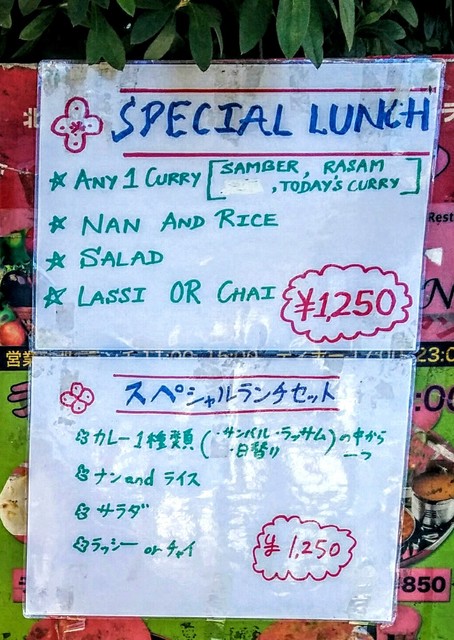 SPECIAL LUNCH
ANY 1 CURRY [SAMBER, RASAM
,TODAY'S CURRY]
NAN AND RICE
SALAD
LASSI OR CHAI
¥1,250
Rest
営業
23:0
スペシャルランチセット
カレー1種類 (・サンバル・ラッサム)の中から
・日替り 一つ
ナンand ライス
サラダ
ラッシー or チャイ
¥ 1,250
850